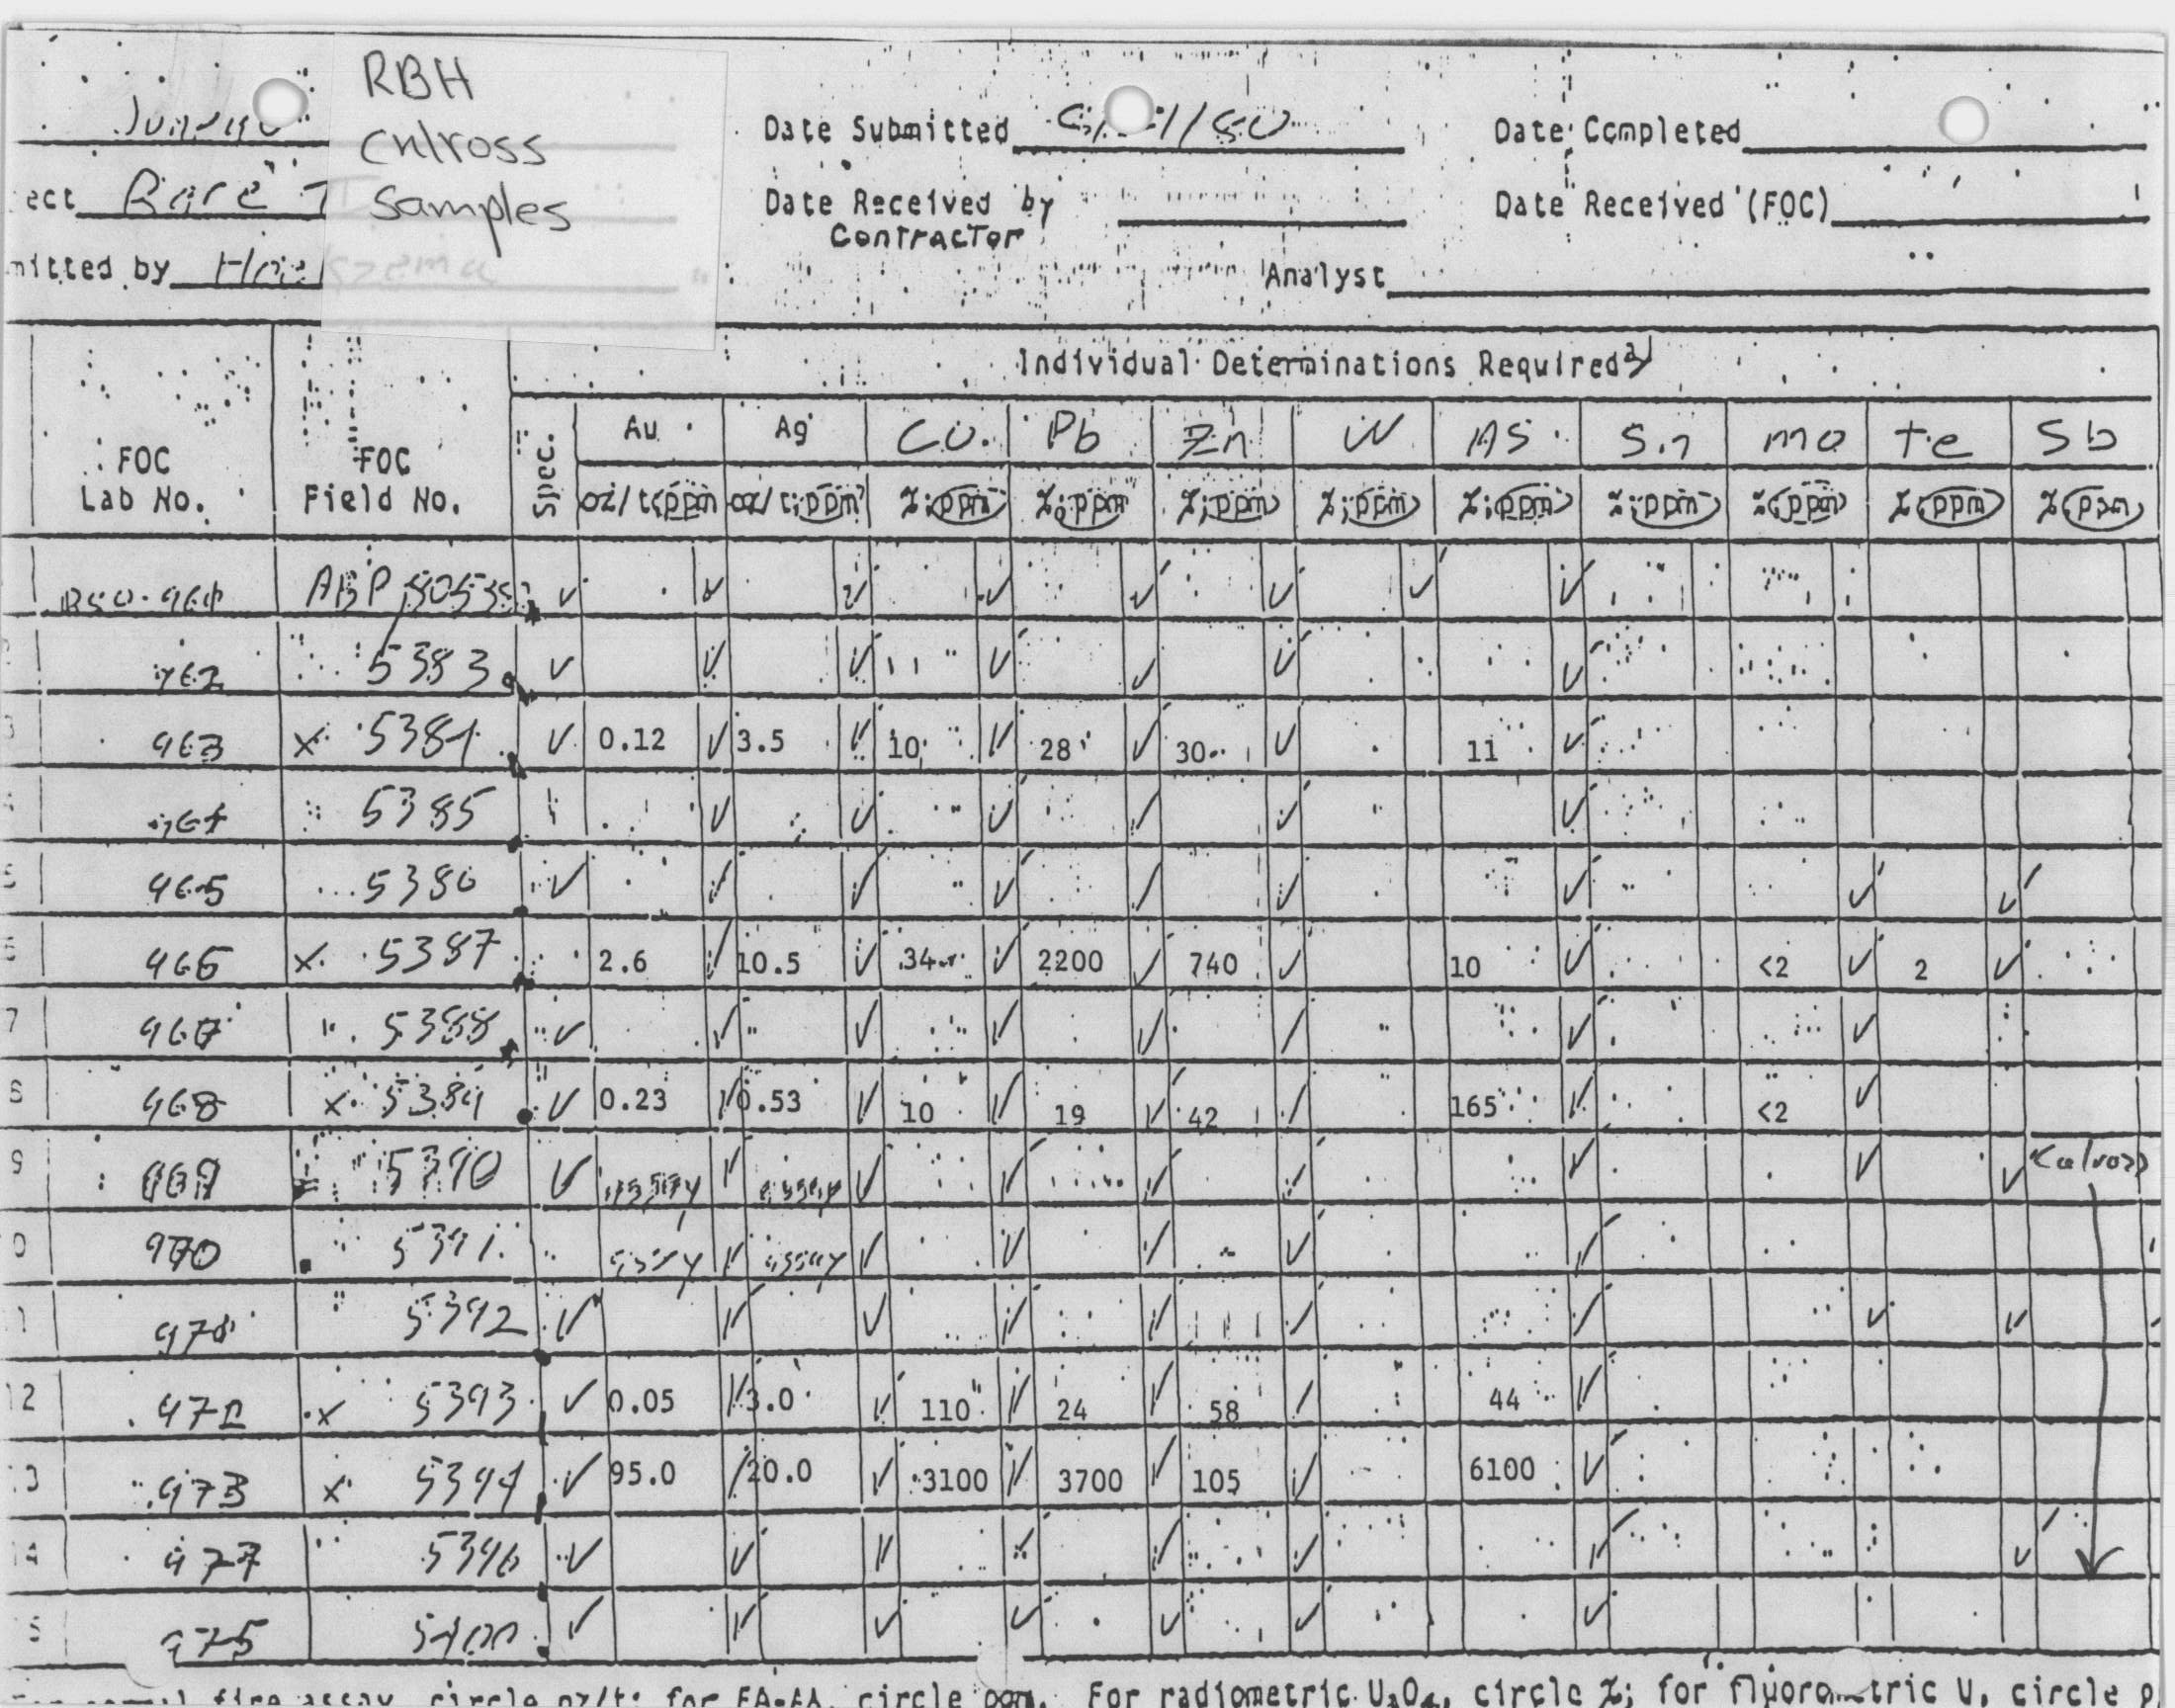 RBH
Culross
Samples
Juneau
Date Submitted
Date Completed
ect Rare
Date Received by
Contractor
Date Received (FOC)
mitted by
Analyst
Individual Determinations Required
FOC Lab No.
FOC Field No.
Spec.
Au Ag Cu Pb Zn W As Sn Mo Te Sb
oz/t;ppm oz/t;ppm %;ppm %;ppm %;ppm %;ppm %;ppm %;ppm %;ppm %;ppm %;ppm
✓ ✓ ✓ ✓ ✓ ✓ ✓ ✓
962 5383 ✓ ✓ ✓ ✓ ✓ ✓ ✓
963 x 5384 ✓ 0.12 ✓ 3.5 ✓ 10 ✓ 28 ✓ 30 ✓ 11 ✓
5385 ✓ ✓ ✓ ✓ ✓ ✓
965 5386 ✓ ✓ ✓ ✓ ✓ ✓ ✓ ✓ ✓
966 x 5387 2.6 ✓ 10.5 ✓ 34 ✓ 2200 ✓ 740 ✓ 10 ✓ <2 ✓ 2 ✓
967 5388 ✓ ✓ ✓ ✓ ✓ ✓ ✓ ✓
968 x 5389 ✓ 0.23 ✓ 0.53 ✓ 10 ✓ 19 ✓ 42 ✓ 165 ✓ <2 ✓
9 969 5390 ✓ assay ✓ assay ✓ ✓ ✓ ✓ ✓ ✓ ✓
970 5391 assay ✓ assay ✓ ✓ ✓ ✓ ✓
5392 ✓ ✓ ✓ ✓ ✓ ✓ ✓ ✓ ✓
972 x 5393 ✓ 0.05 ✓ 3.0 ✓ 110 ✓ 24 ✓ 58 ✓ 44 ✓
973 x 5394 ✓ 95.0 ✓ 20.0 ✓ 3100 ✓ 3700 ✓ 105 ✓ 6100 ✓
5396 ✓ ✓ ✓ ✓ ✓ ✓ ✓ ✓
975 5400 ✓ ✓ ✓ ✓ ✓ ✓ ✓
fire assay, circle oz/t; for FA-AA, circle ppm. For radiometric U₃O₈, circle %; for fluorometric U, circle p